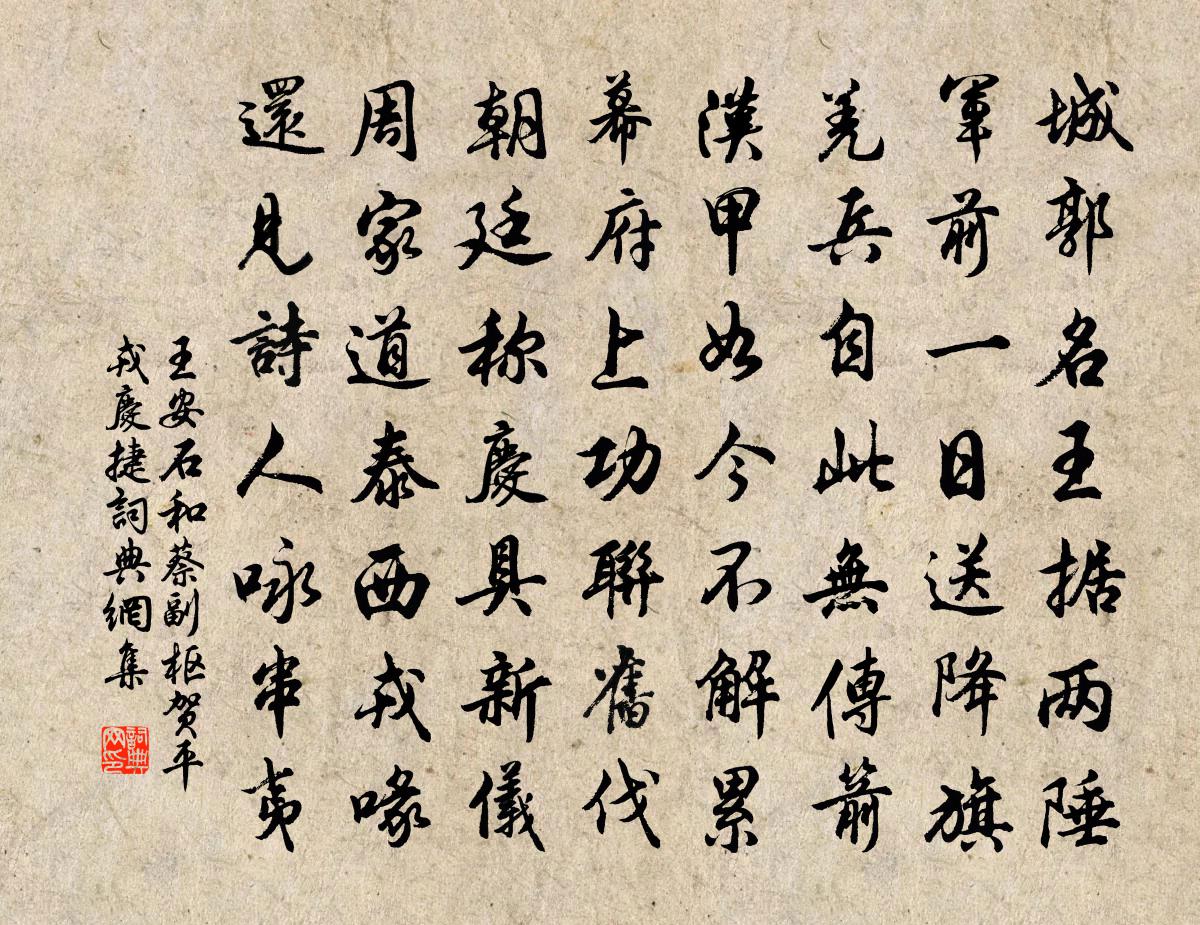 城郭名王据两陲
軍前一日送降旗
羌兵自此無傳箭
漢甲如今不解累
幕府上功聯舊伐
朝廷称慶具新儀
周家道泰西戎喙
還見詩人咏串夷
王安石和蔡副枢贺平
戎慶捷詞典網集
詞典
网印